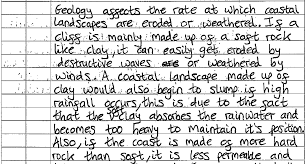 Geology affects the rate at which coastal
landscapes are eroded or weathered. If a
cliff is mainly made up of a soft rock
like clay, it can easily get eroded by
destructive waves or weathered by
winds. A coastal landscape made up of
clay would also begin to slump is high
rainfall occurs, this is due to the fact
that the clay absorbes the rainwater and
becomes too heavy to maintain it's position.
Also, if the coast is made of more hard
rock than soft, it is less permeable and